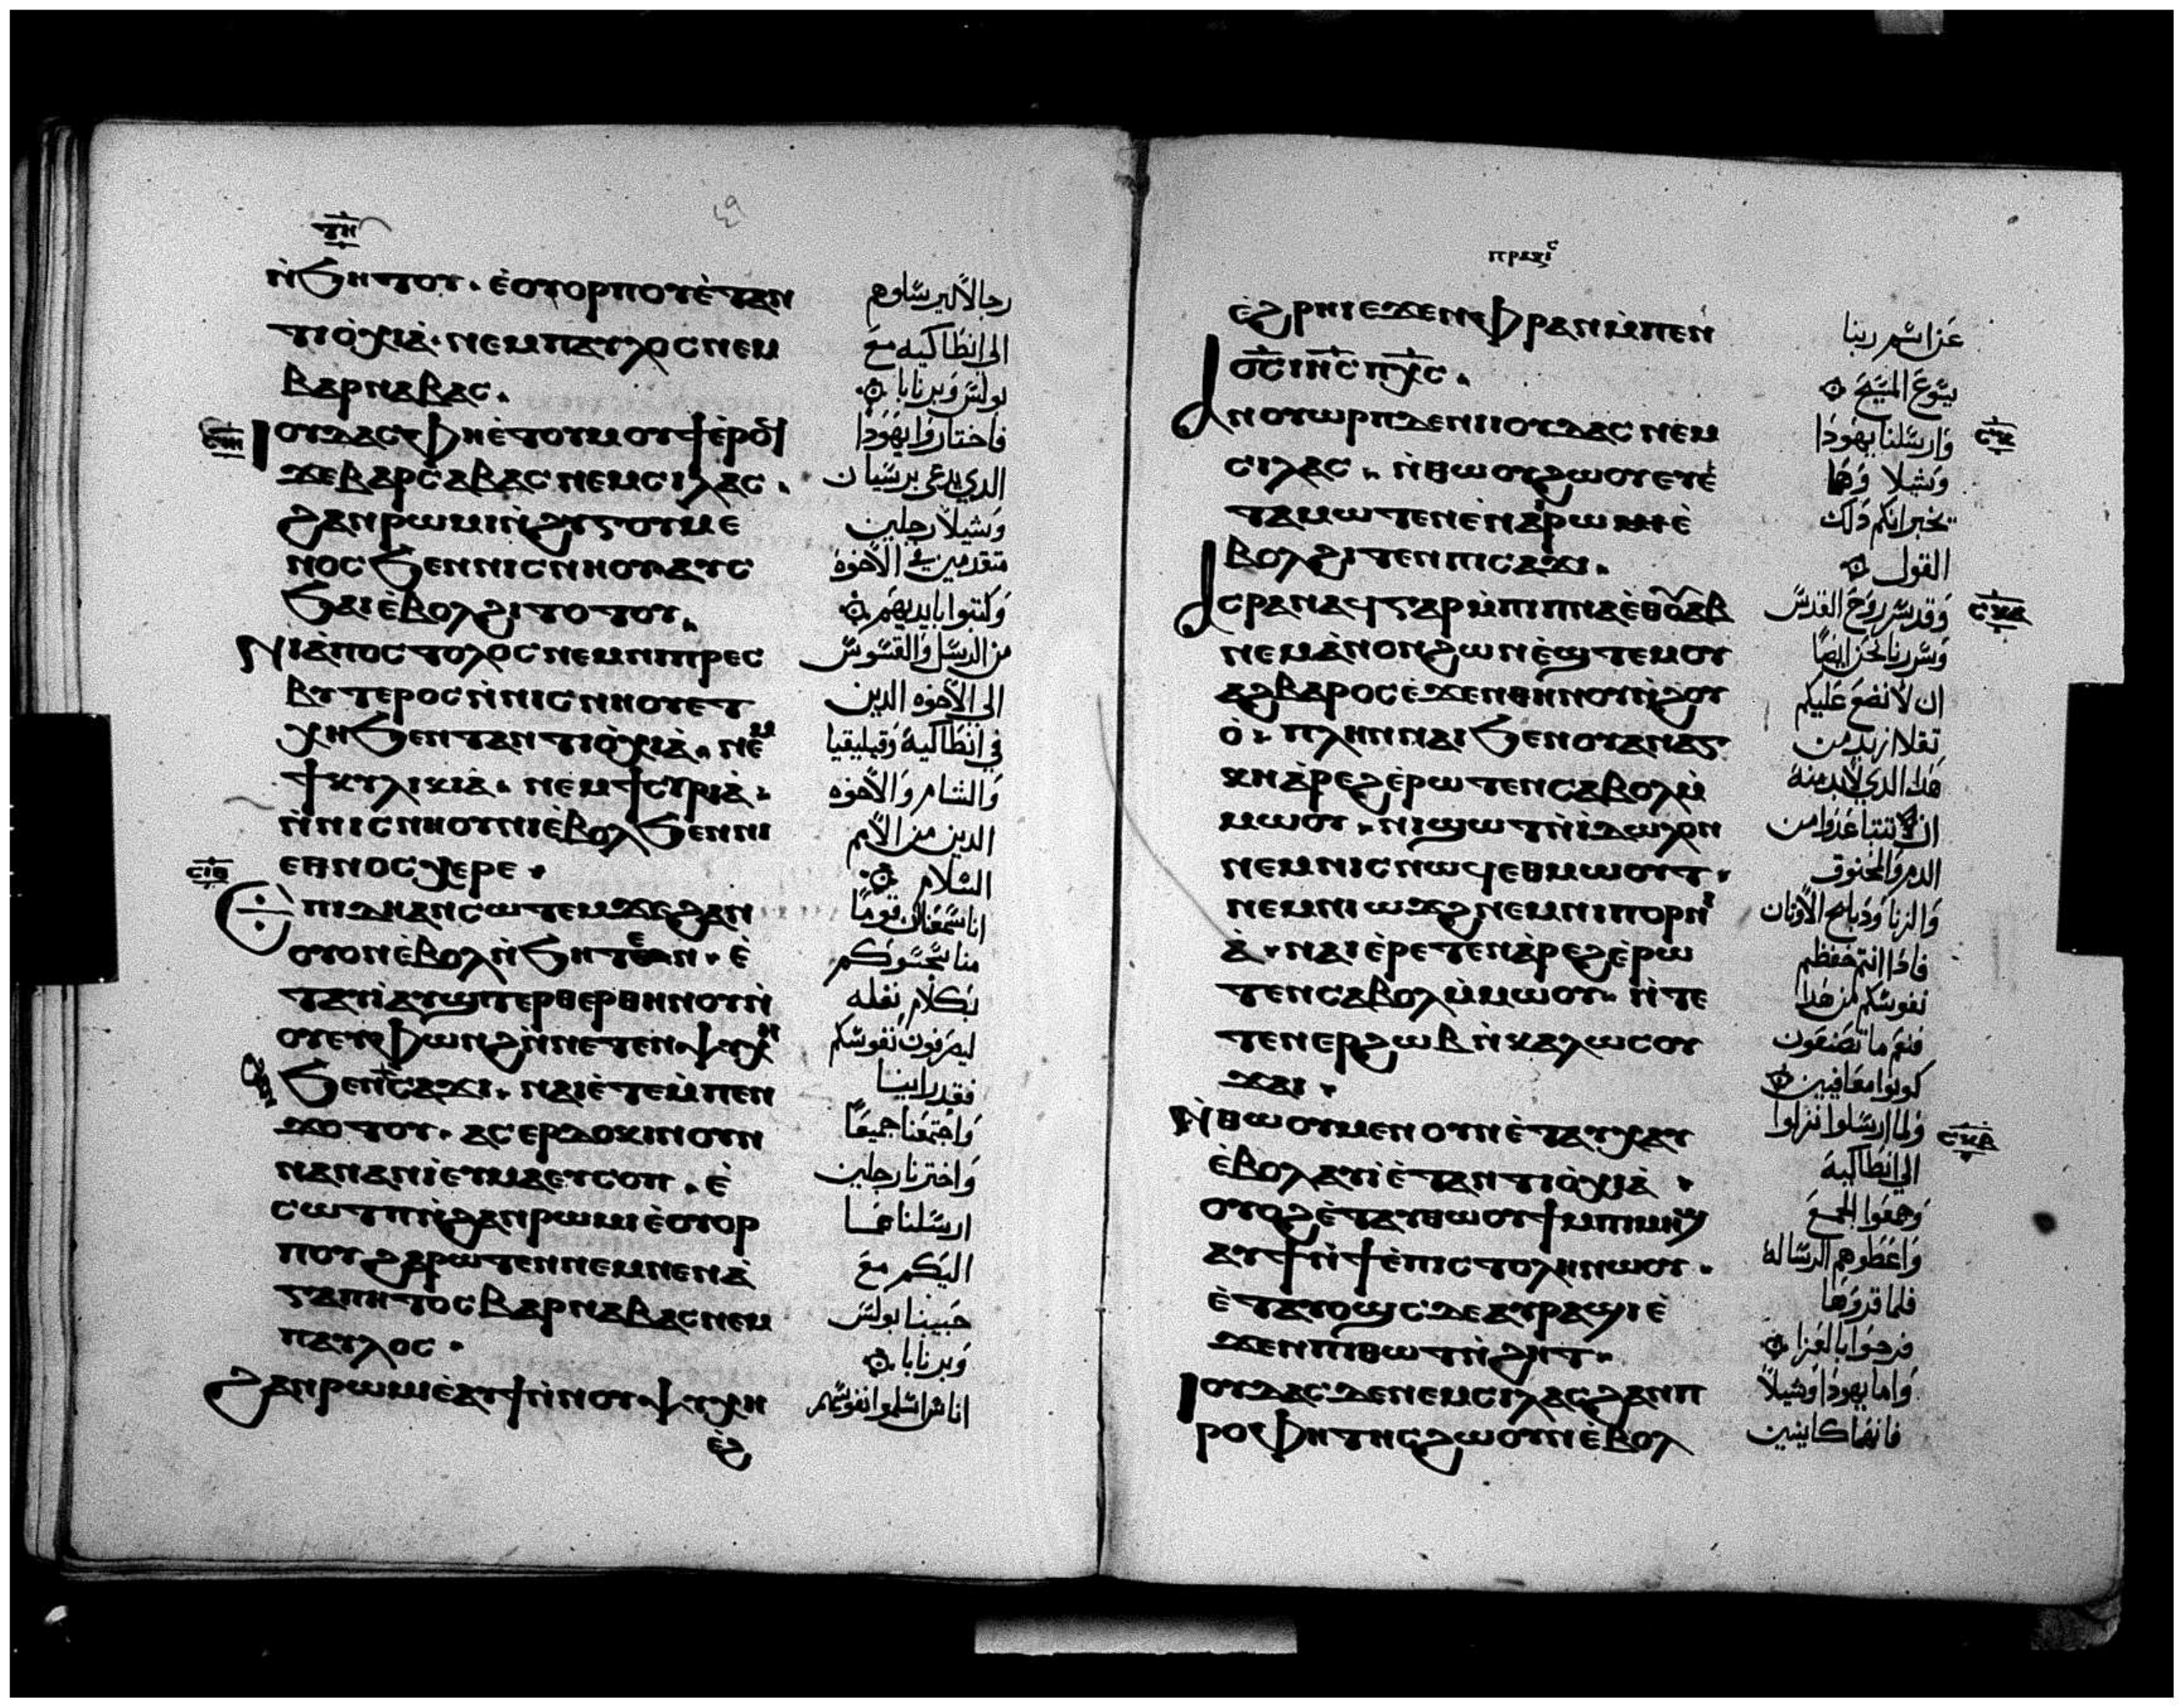 ⲧⲏ
٤٩
ⲛ̀ϧⲏⲧⲟⲩ . ⲉ̀ⲟⲩⲟⲣⲡⲟⲩⲉ̀ⲧⲁⲛ
ⲧⲓⲟ̀ⲭⲓⲁ̀ . ⲛⲉⲙⲡⲁⲩⲗⲟⲥⲛⲉⲙ
ⲃⲁⲣⲛⲁⲃⲁⲥ .
ⲥⲓⲏ
ⲓⲟⲩⲇⲁⲥⲫⲏⲉ̀ⲧⲟⲩⲙⲟⲩϯⲉ̀ⲣⲟϥ
ϫⲉⲃⲁⲣⲥⲁⲃⲁⲥⲛⲉⲙⲥⲓⲗⲁⲥ .
ϩⲁⲛⲣⲱⲙⲓⲛ̀ϩⲩⲅⲟⲩⲙⲉ
ⲛⲟⲥϧⲉⲛⲛⲓⲥⲛⲏⲟⲩⲁⲩⲥ
ϧⲁⲓⲉ̀ⲃⲟⲗϩⲓⲧⲟⲧⲟⲩ .
ⲛⲓⲁ̀ⲡⲟⲥⲧⲟⲗⲟⲥⲛⲉⲙⲛⲓⲡⲣⲉⲥ
ⲃⲩⲧⲉⲣⲟⲥⲛ̀ⲛⲓⲥⲛⲏⲟⲩⲉⲧ
ⲭⲏϧⲉⲛⲧⲁⲛⲧⲓⲟ̀ⲭⲓⲁ̀ . ⲛⲉⲙ
ϯⲕⲩⲗⲓⲕⲓⲁ̀ . ⲛⲉⲙϯⲥⲩⲣⲓⲁ̀ .
ⲛ̀ⲛⲓⲥⲛⲏⲟⲩⲛⲓⲉ̀ⲃⲟⲗϧⲉⲛⲛⲓ
ⲉⲑⲛⲟⲥⲭⲉⲣⲉ .
ⲥⲓⲑ
ⲉⲡⲓⲇⲏⲁⲛⲥⲱⲧⲉⲙϫⲉϩⲁⲛ
ⲟⲩⲟⲛⲉ̀ⲃⲟⲗⲛ̀ϧⲏⲧⲉⲛ . ⲉ̀
ⲧⲁⲩⲓ̀ⲁⲩϣⲧⲉⲣⲑⲉⲣⲑⲏⲛⲟⲩⲛ̀
ⲟⲩⲉⲧⲫⲱⲛϩⲛ̀ⲛⲉⲧⲉⲛⲯⲩⲭⲏ
ϧⲉⲛⲥⲁϫⲓ . ⲛⲁⲓⲉ̀ⲧⲉⲙ̀ⲡⲉⲛ
ϫⲟⲧⲟⲩ . ⲁⲥⲉⲣⲇⲟⲕⲓⲛⲟⲩⲛ
ⲛⲁⲛⲁⲛⲓ̀ⲉⲩⲙⲁⲉⲩⲥⲟⲡ . ⲉ̀
ⲥⲱⲧⲡⲛ̀ϩⲁⲛⲣⲱⲙⲓⲉ̀ⲟⲩⲟⲣ
ⲡⲟⲩϩⲁⲣⲱⲧⲉⲛⲛⲉⲙⲛⲉⲛⲁ̀
ⲅⲁⲡⲏⲧⲟⲥⲃⲁⲣⲛⲁⲃⲁⲥⲛⲉⲙ
ⲡⲁⲩⲗⲟⲥ .
ϩⲁⲛⲣⲱⲙⲓⲉ̀ⲁⲩϯⲛ̀ⲛⲟⲩⲯⲩⲭⲏ
ⲉ̀ϩ
رجالا ليرسلوهم
الى انطاكيه مع
بولس وبرنابا
فاختاروا يهودا
الدي يدعى برسبان
وشيلا رجلين
متقدمين في الاخوه
وكتبوا بايديهم
من الرسل والقسوس
الى الاخوه الدين
في انطاكيه وقيليقيا
والشام والاخوه
الدين من الامم
السلام
انا سمعنا ان قوما
منا سجسوكم
بكلام نقله
ليصرفون نفوسكم
فقد راينا
واجتمعنا جميعا
واخترنا رجلين
ارسلناهما
اليكم مع
حبيبنا بولس
وبرنابا
اناس اسلموا نفوسهم
ⲡⲣⲁⲝⲓⲥ
ⲉ̀ϩⲣⲏⲓⲉϫⲉⲛⲫⲣⲁⲛⲙ̀ⲡⲉⲛ
ⲟ̅ⲥ̅ⲓⲏ̅ⲥ̅ⲡⲭ̅ⲥ̅ .
ⲁⲛⲟⲩⲱⲣⲡⲇⲉⲛⲓⲟⲩⲇⲁⲥⲛⲉⲙ
ⲥⲓⲗⲁⲥ . ⲛ̀ⲑⲱⲟⲩϩⲱⲟⲩⲉⲩⲉ̀
ⲧⲁⲙⲱⲧⲉⲛⲉ̀ⲛⲁⲓⲣⲱⲙⲉ̀
ⲃⲟⲗϩⲓⲧⲉⲛⲡⲓⲥⲁϫⲓ .
ⲁⲥⲣⲁⲛⲁϥⲅⲁⲣⲙ̀ⲡⲓⲡⲛⲁⲉ̀ⲑⲟⲩⲁⲃ
ⲛⲉⲙⲁ̀ⲛⲟⲛϩⲱⲛⲉ̀ϣⲧⲉⲙⲟⲩ
ⲁϩⲃⲁⲣⲟⲥⲉ̀ϫⲉⲛⲑⲏⲛⲟⲩⲛ̀ϩⲟⲩ
ⲟ̀ . ⲡⲗⲏⲛⲛⲁⲓϧⲉⲛⲟⲩⲁⲛⲁⲅ
ⲕⲏⲁ̀ⲣⲉϩⲉ̀ⲣⲱⲧⲉⲛⲥⲁⲃⲟⲗⲙ̀
ⲙⲱⲟⲩ . ⲛⲓϣⲱⲧⲛ̀ⲓ̀ⲇⲱⲗⲟⲛ
ⲛⲉⲙⲛⲓⲥⲛⲱϥⲉⲑⲙⲱⲟⲩⲧ .
ⲛⲉⲙⲛⲓⲱϫϩⲛⲉⲙⲛⲓⲡⲟⲣⲛⲓ
ⲁ̀ . ⲛⲁⲓⲉ̀ⲣⲉⲧⲉⲛⲁ̀ⲣⲉϩⲉ̀ⲣⲱ
ⲧⲉⲛⲥⲁⲃⲟⲗⲙ̀ⲙⲱⲟⲩ . ⲛ̀ⲧⲉ
ⲧⲉⲛⲉⲣϩⲱⲃⲛ̀ⲕⲁⲗⲱⲥⲟⲩ
ϫⲁⲓ .
ⲛ̀ⲑⲱⲟⲩⲙⲉⲛⲟⲩⲛⲉ̀ⲧⲁⲩⲭⲁⲩ
ⲉ̀ⲃⲟⲗⲁⲩⲓ̀ⲉ̀ⲧⲁⲛⲧⲓⲟ̀ⲭⲓⲁ̀ .
ⲟⲩⲟϩⲉ̀ⲧⲁⲩⲑⲱⲟⲩϯⲙⲡⲓⲙⲏϣ
ⲁⲩϯⲛ̀ϯⲉ̀ⲡⲓⲥⲧⲟⲗⲏⲛⲱⲟⲩ .
ⲉ̀ⲧⲁⲩⲟϣⲥⲇⲉⲁⲩⲣⲁϣⲓⲉ̀
ϫⲉⲛⲡⲓⲑⲱⲧⲛ̀ϩⲏⲧ .
ⲓⲟⲩⲇⲁⲥⲇⲉⲛⲉⲙⲥⲓⲗⲁⲥϩⲁⲛⲡ
ⲣⲟⲫⲏⲧⲏⲥϩⲱⲟⲩⲛⲉ̀ⲃⲟⲗ
عن اسم ربنا
يسوع المسيح
وارسلنا يهودا
ⲥⲕ
وشيلا وهما
يخبرانكم دلك
القول
وقد سر روح القدس
ⲥⲕⲁ
وسررنا نحن ايضا
ان لا نضع عليكم
تقلا ازيد من
هدا الدي لابد منه
ان تتباعدوا من
الدم والمخنوق
والزنا ودبايح الاوتان
فادا انتم حفظتم
نفوسكم من هدا
فنعم ما تصنعون
كونوا معافيين
ولما ارسلوا نزلوا
ⲥⲕⲃ
الي انطاكية
وجمعوا الجمع
واعطوهم الرساله
فلما قروها
فرحوا بالعزا
واما يهودا وشيلا
فانهما كانيين